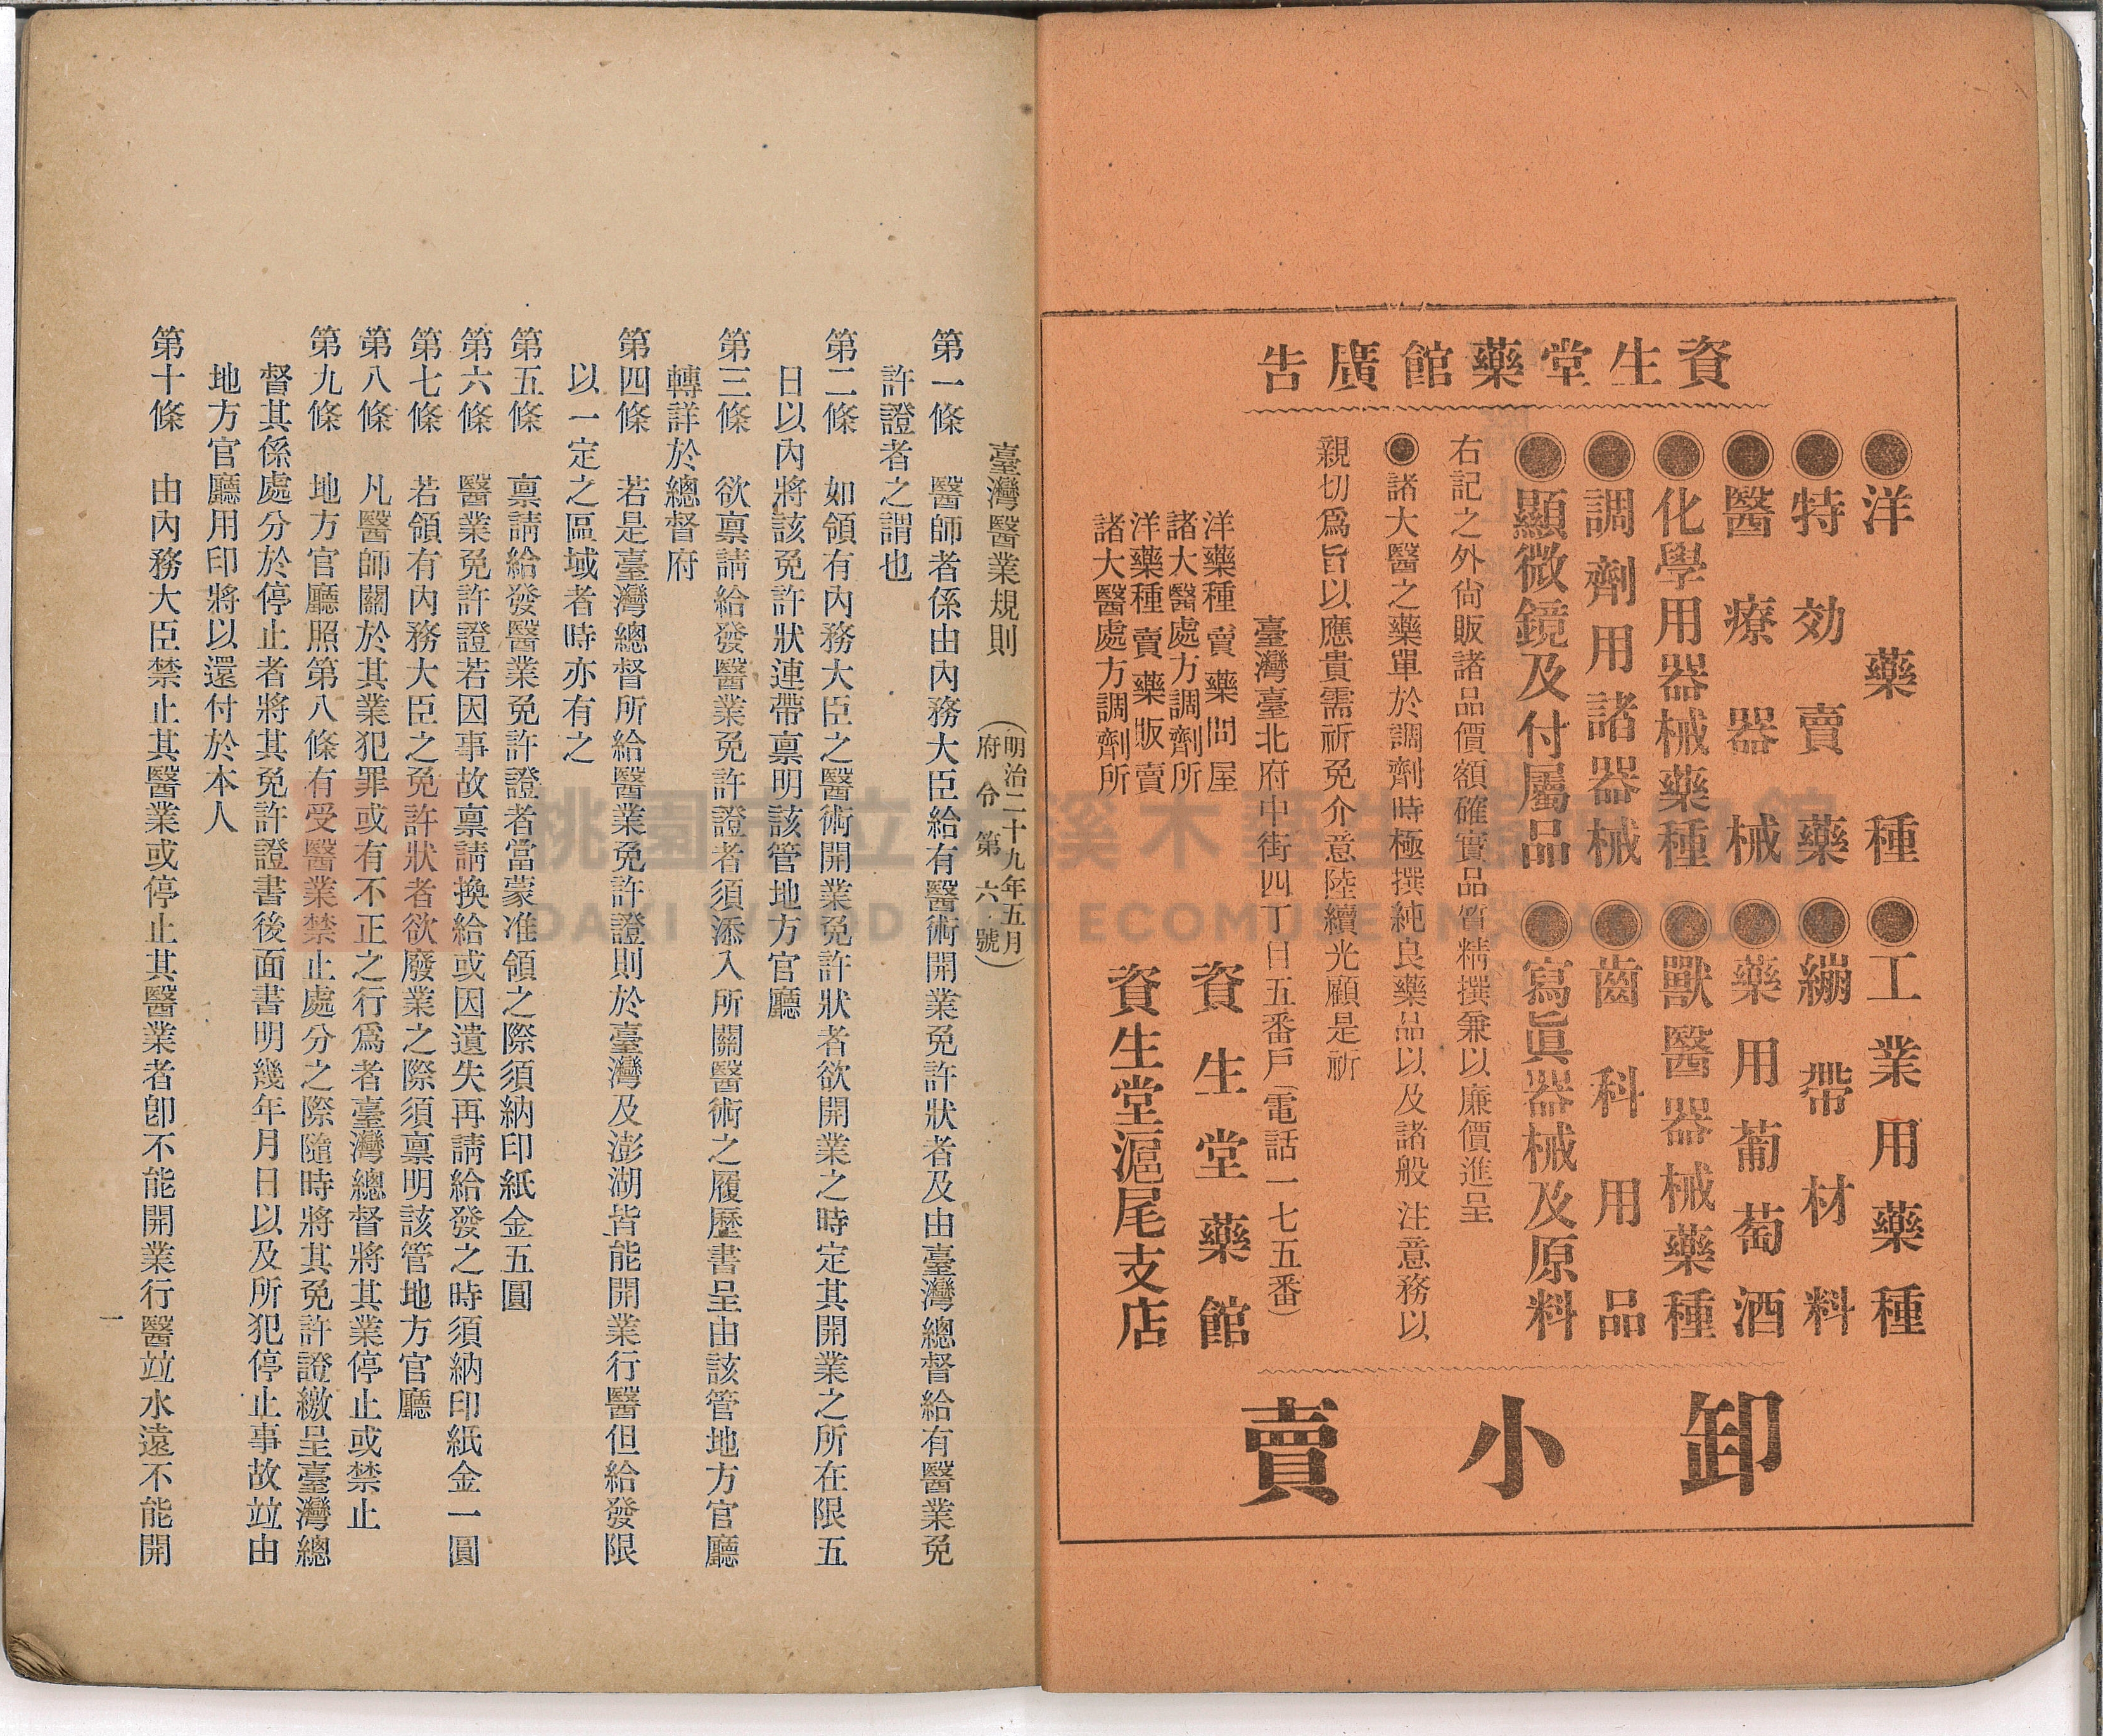 資生堂藥館廣告
◉洋藥種◉工業用藥種
◉特効賣藥◉繃帶材料
◉醫療器械◉藥用葡萄酒
◉化學用器械藥種◉獸醫器械藥種
◉調劑用諸器械◉齒科用品
◉顯微鏡及付屬品◉寫眞器械及原料
右記之外尙販諸品價額確實品質精撰兼以廉價進呈
◉諸大醫之藥單於調劑時極撰純良藥品以及諸般注意務以
親切爲旨以應貴需祈免介意陸續光顧是祈
臺灣臺北府中街四丁目五番戶(電話一七五番)
洋藥種賣藥問屋
諸大醫處方調劑所
資生堂藥館
洋藥種賣藥販賣
諸大醫處方調劑所
資生堂滬尾支店
卸小賣
臺灣醫業規則
(明治二十九年五月
府令第六號)
第一條 醫師者係由內務大臣給有醫術開業免許狀者及由臺灣總督給有醫業免
許證者之謂也
第二條 如領有內務大臣之醫術開業免許狀者欲開業之時定其開業之所在限五
日以內將該免許狀連帶稟明該管地方官廳
第三條 欲稟請給發醫業免許證者須添入所關醫術之履歷書呈由該管地方官廳
轉詳於總督府
第四條 若是臺灣總督所給醫業免許證則於臺灣及澎湖皆能開業行醫但給發限
以一定之區域者時亦有之
第五條 稟請給發醫業免許證者當蒙准領之際須納印紙金五圓
第六條 醫業免許證若因事故稟請換給或因遺失再請給發之時須納印紙金一圓
第七條 若領有內務大臣之免許狀者欲廢業之際須稟明該管地方官廳
第八條 凡醫師關於其業犯罪或有不正之行爲者臺灣總督將其業停止或禁止
第九條 地方官廳照第八條有受醫業禁止處分之際隨時將其免許證繳呈臺灣總
督其係處分於停止者將其免許證書後面書明幾年月日以及所犯停止事故竝由
地方官廳用印將以還付於本人
第十條 由內務大臣禁止其醫業或停止其醫業者卽不能開業行醫竝永遠不能開
一
桃園市立大溪木藝生態博物館
DAXI WOOD ART ECOMUSEUM, TAOYUAN